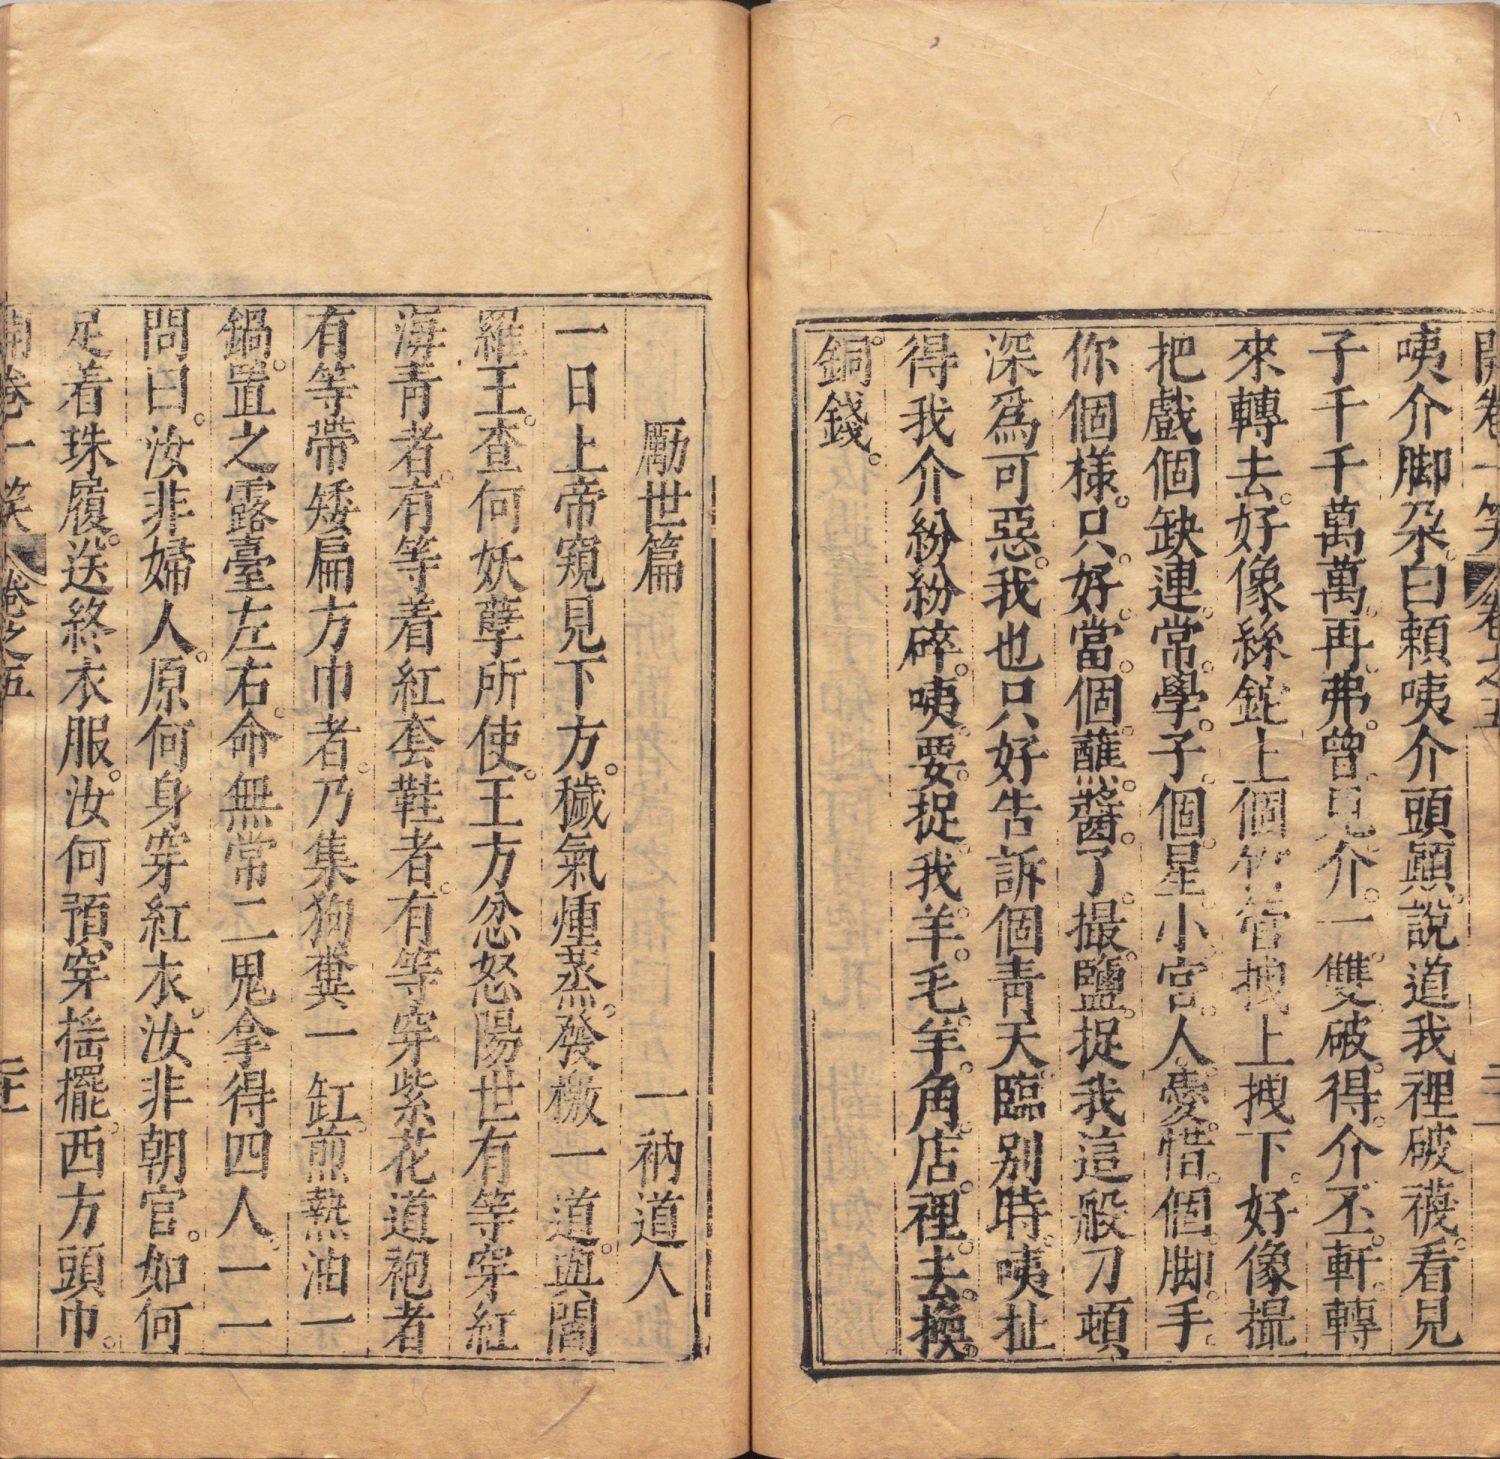 開卷一笑 卷之五 二十一
咦介脚朶。白頼咦介頭顚。說道我裡破襪。看見
子千千千萬萬。再弗曾見介一雙破得介丕軒。轉
來轉去。好像絲錠上個竹管。拽上拽下。好像撮
把戲個缺連常。學子個星小官人。憂惜個脚手。
你個樣。只好當個蘸醬了撮鹽。捉我這般刀頓
深爲可惡。我也只好告訴個靑天。臨别時。咦扯
得我介紛紛碎。咦要捉我羊毛羊角店裡去換
銅錢。
勵世篇 一衲道人
一日上帝窺見下方。穢氣煄蒸。發檄一道。與閻
羅王。查何妖孽所使。王方忿怒陽世有等穿紅
海靑者。有等着紅套鞋者。有等穿紫花道袍者
有等帶矮扁方巾者。乃集狗糞一缸。煎熱油一
鍋。置之露臺左右。命無常二鬼拿得四人。一一
問曰。汝非婦人。原何身穿紅衣。汝非朝官。如何
足着珠履。送終衣服。汝何預穿搖擺。西方頭巾。
開卷一笑 卷之五 二十二